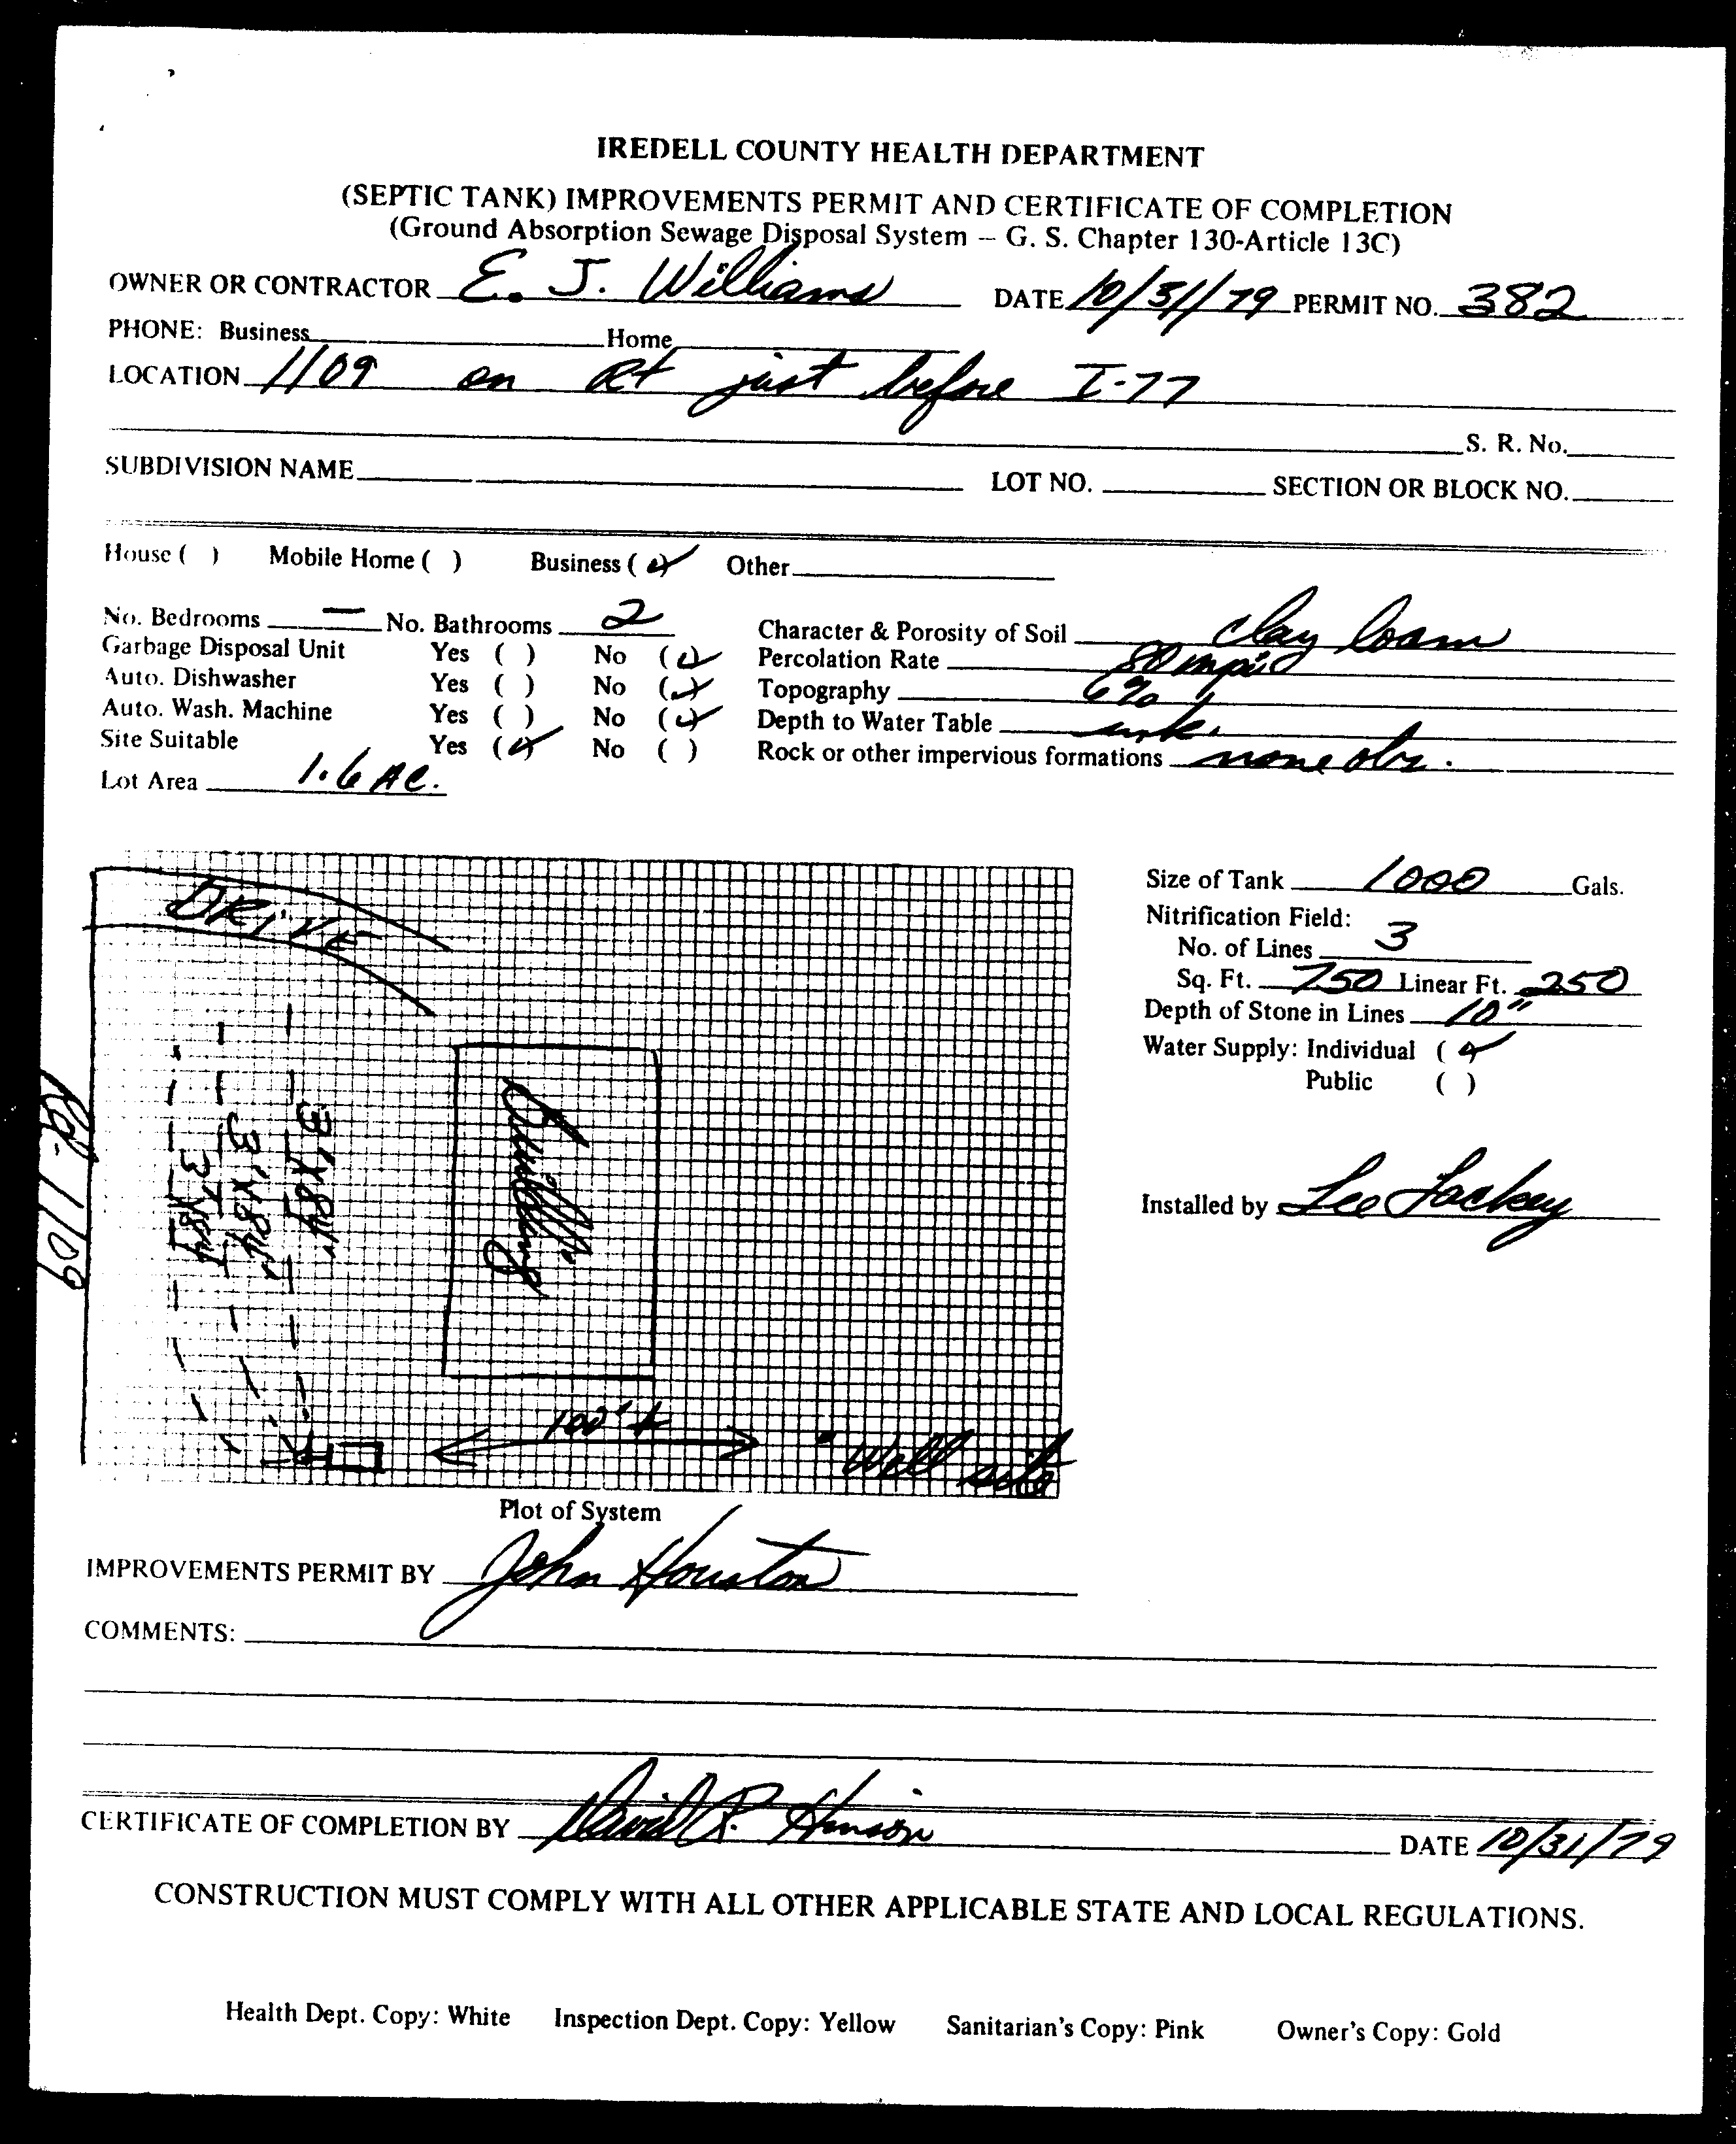 IREDELL COUNTY HEALTH DEPARTMENT
(SEPTIC TANK) IMPROVEMENTS PERMIT AND CERTIFICATE OF COMPLETION
(Ground Absorption Sewage Disposal System – G. S. Chapter 130-Article 13C)
OWNER OR CONTRACTOR E. J. Williams DATE 10/31/79 PERMIT NO. 382
PHONE: Business Home
LOCATION 1109 on Rt just before I-77
S. R. No.
SUBDIVISION NAME LOT NO. SECTION OR BLOCK NO.
House ( ) Mobile Home ( ) Business (✓) Other
No. Bedrooms — No. Bathrooms 2
Garbage Disposal Unit Yes ( ) No (✓)
Auto. Dishwasher Yes ( ) No (✓)
Auto. Wash. Machine Yes ( ) No (✓)
Site Suitable Yes (✓) No ( )
Lot Area 1.6 AC.
Character & Porosity of Soil clay loam
Percolation Rate 80 mpi
Topography 6%
Depth to Water Table unk.
Rock or other impervious formations none obs.
DRIVE
Rd. 1109
3'X84'
3'X84'
3'X84'
Building
100' ±
Well site
Plot of System
Size of Tank 1000 Gals.
Nitrification Field:
No. of Lines 3
Sq. Ft. 750 Linear Ft. 250
Depth of Stone in Lines 10"
Water Supply: Individual (✓)
Public ( )
Installed by Lee Lackey
IMPROVEMENTS PERMIT BY John Houston
COMMENTS:
CERTIFICATE OF COMPLETION BY David R. Hinson DATE 10/31/79
CONSTRUCTION MUST COMPLY WITH ALL OTHER APPLICABLE STATE AND LOCAL REGULATIONS.
Health Dept. Copy: White Inspection Dept. Copy: Yellow Sanitarian's Copy: Pink Owner's Copy: Gold